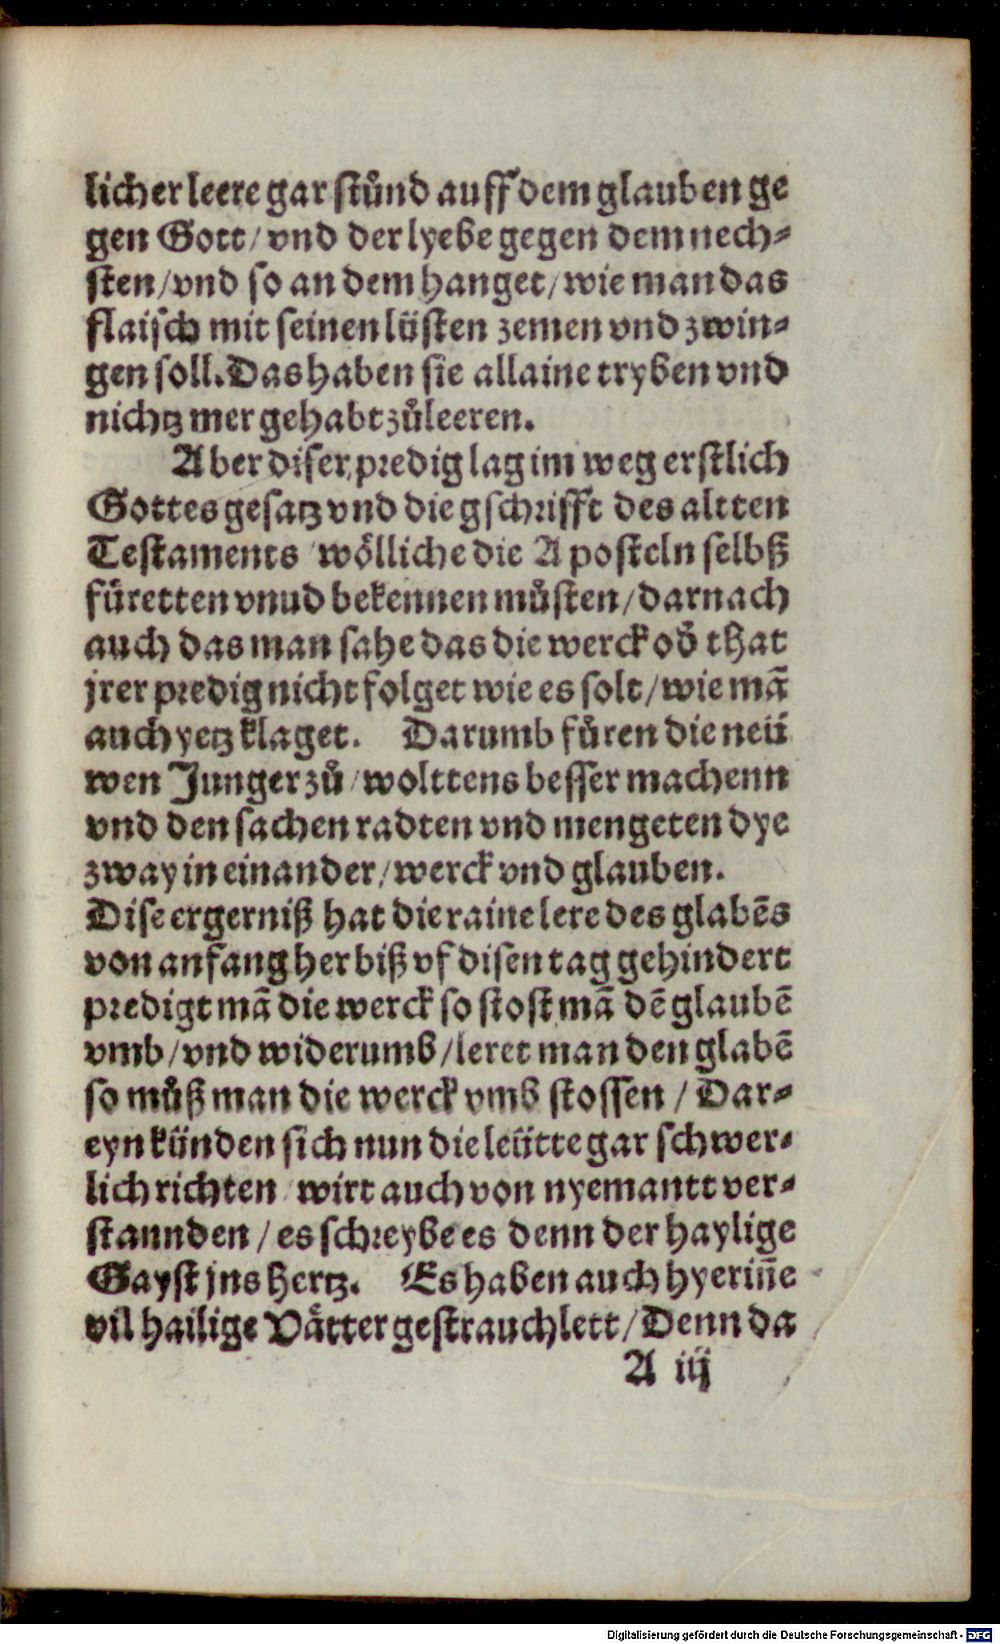 licher leere gar stůnd auff dem glauben ge
gen Gott/ vnd der lyebe gegen dem nech⸗
sten/vnd so an dem hanget/wie man das
flaisch mit seinen lüsten zemen vnd zwin⸗
gen soll. Das haben sie allaine tryben vnd
nichtz mer gehabt zůleeren.
Aber diser predig lag im weg erstlich
Gottes gesatz vnd die gschrifft des altten
Testaments wölliche die Aposteln selbß
fůretten vnud bekennen můsten/darnach
auch das man sahe das die werck od̛ that
jrer predig nicht folget wie es solt/wie mã
auch yetz klaget. Darumb fůren die neü
wen Junger zů/wolttens besser machenn
vnd den sachen radten vnd mengeten dye
zway in einander/werck vnd glauben.
Dise ergerniß hat die raine lere des glabẽs
von anfang her biß vf disen tag gehindert
predigt mã die werck so stost mã dẽ glaubẽ
vmb/vnd widerumb/leret man den glabẽ
so můß man die werck vmb stossen / Dar⸗
eyn künden sich nun die leütte gar schwer⸗
lich richten wirt auch von nyemantt ver⸗
stannden/es schreybe es denn der haylige
Gayst jns hertz. Es haben auch hyeriñe
vil hailige Vätter gestrauchlett/Denn da
A iij
Digitalisierung gefördert durch die Deutsche Forschungsgemeinschaft - DFG